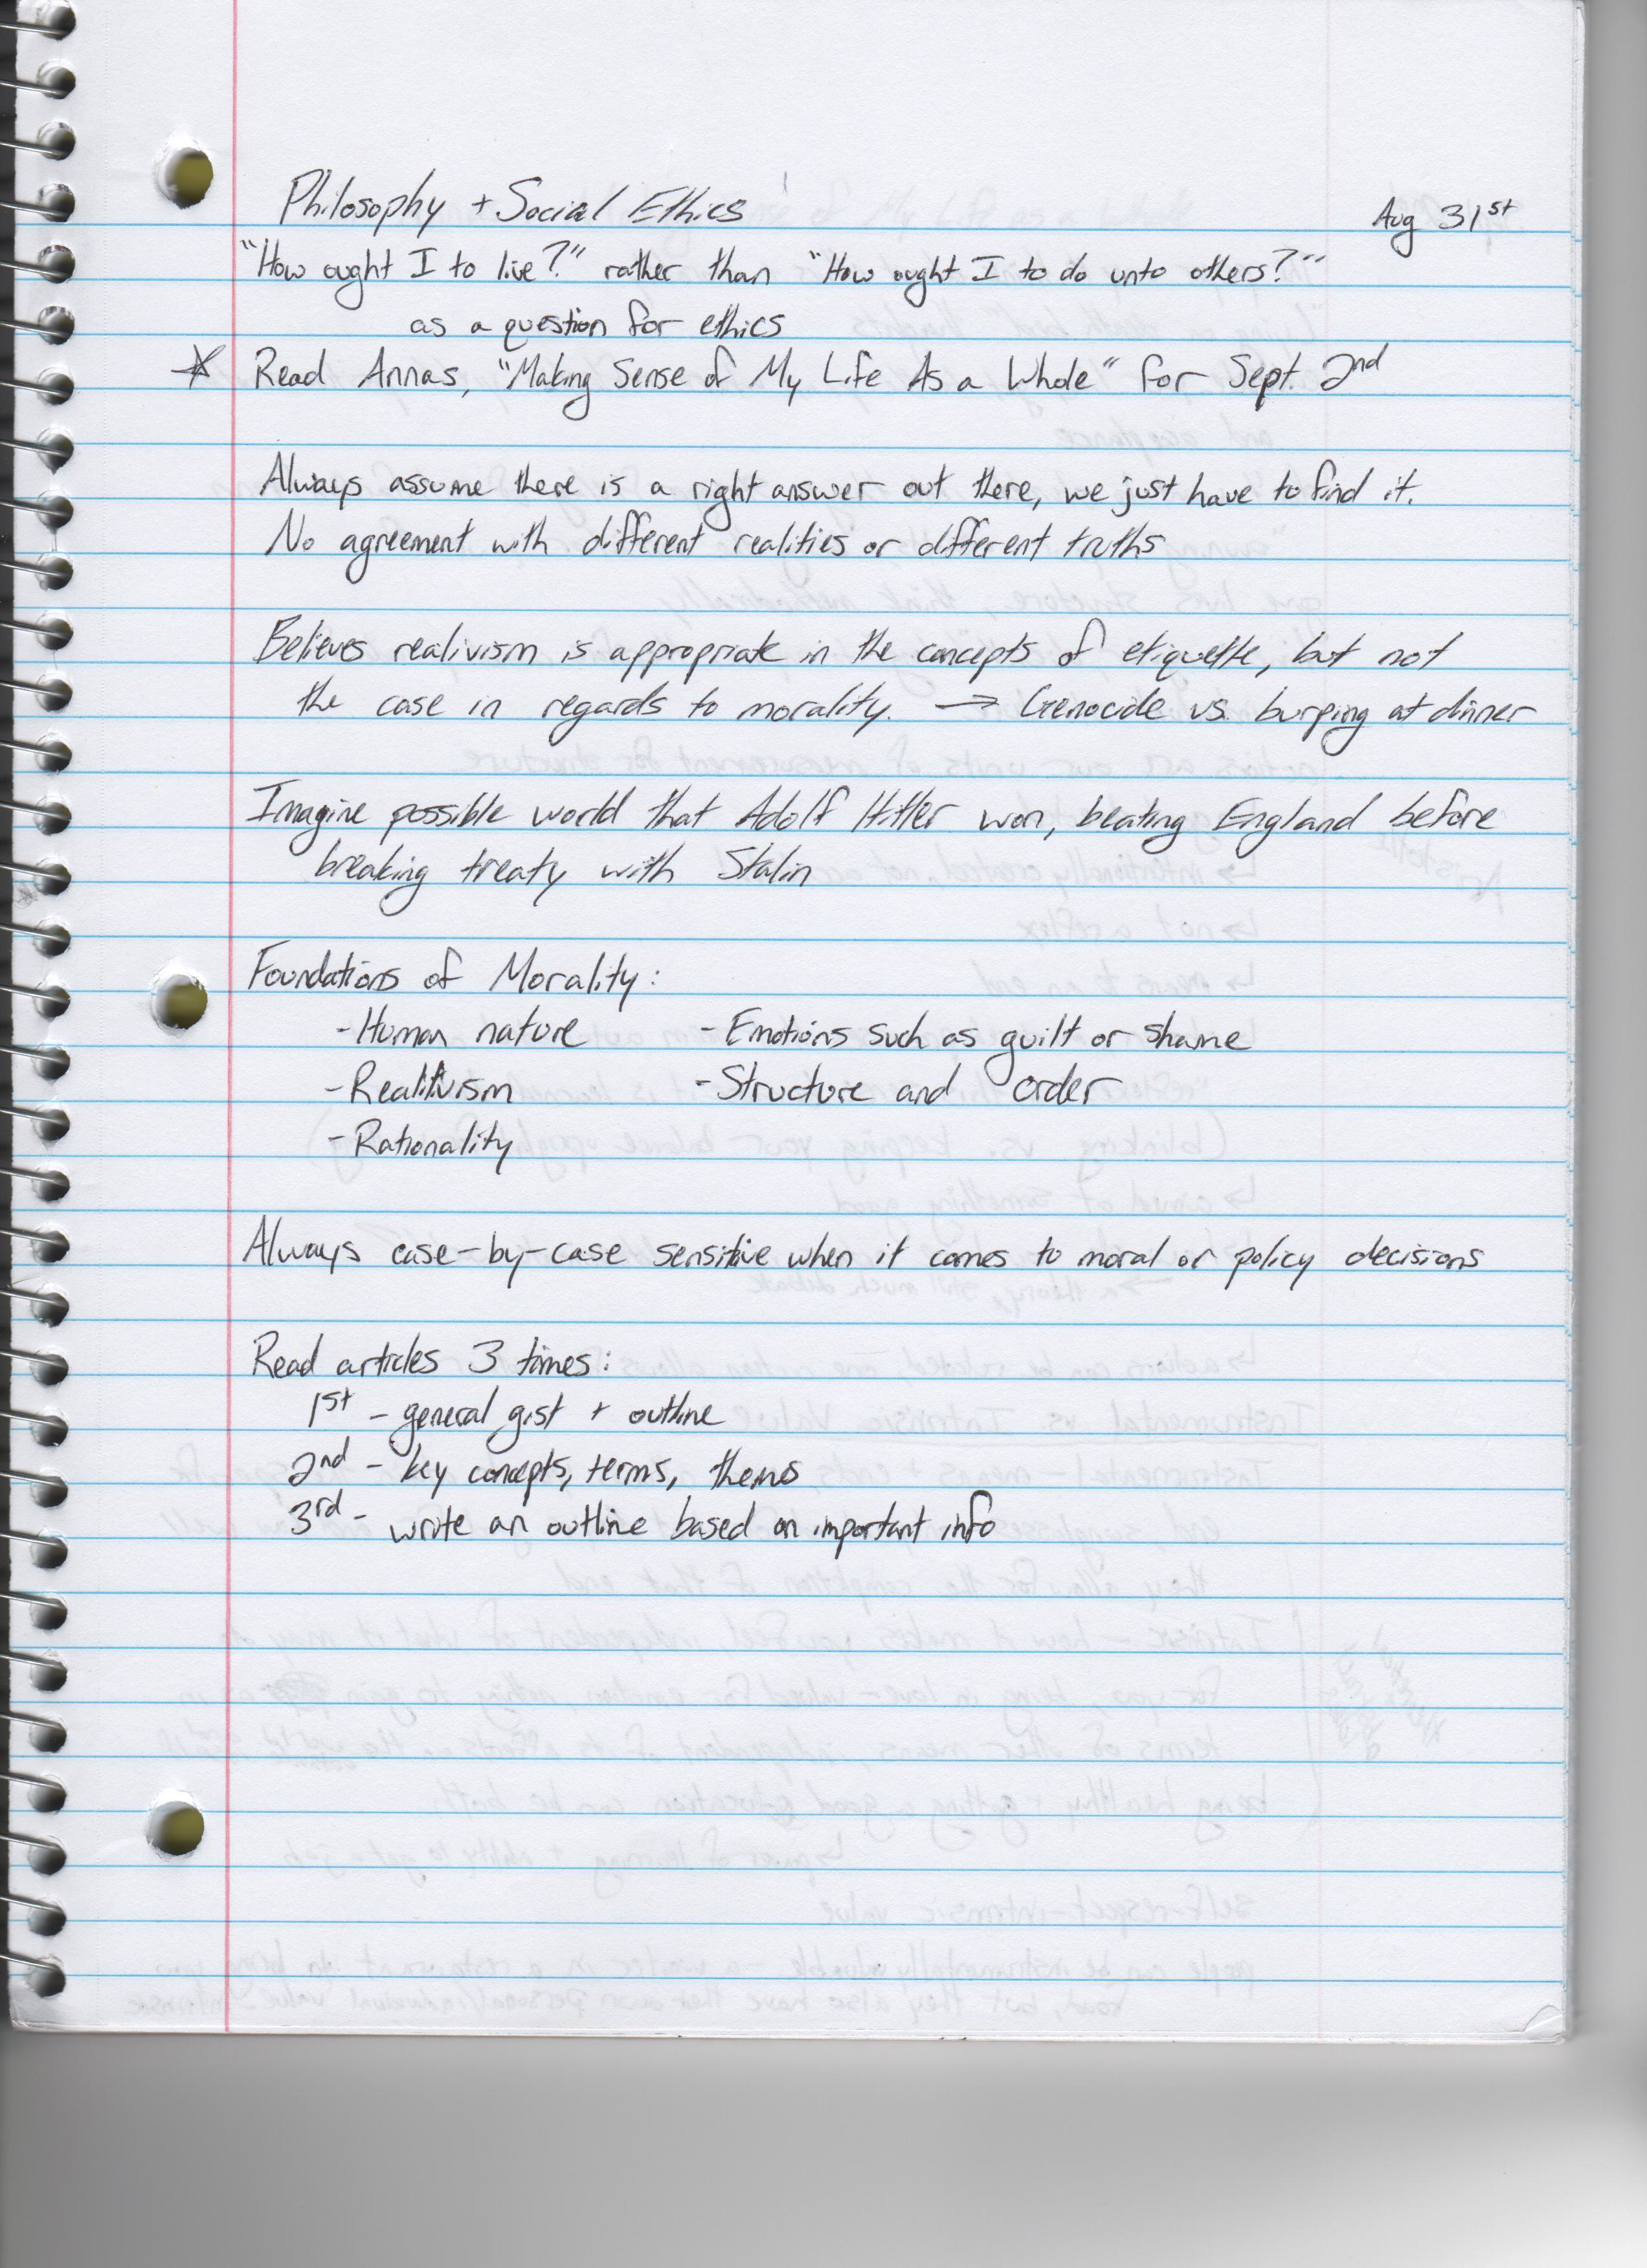 Philosophy + Social Ethics
Aug 31st
"How ought I to live?" rather than "How ought I to do unto others?"
as a question for ethics
★ Read Annas, "Making Sense of My Life As a Whole" for Sept. 2nd
Always assume there is a right answer out there, we just have to find it.
No agreement with different realities or different truths
Believes realivism is appropriate in the concepts of etiquette, but not
the case in regards to morality. → Genocide vs. burping at dinner
Imagine possible world that Adolf Hitler won, beating England before
breaking treaty with Stalin
Foundations of Morality:
- Human nature - Emotions such as guilt or shame
- Realitivism - Structure and order
- Rationality
Always case-by-case sensitive when it comes to moral or policy decisions
Read articles 3 times:
1st - general gist + outline
2nd - key concepts, terms, themes
3rd - write an outline based on important info